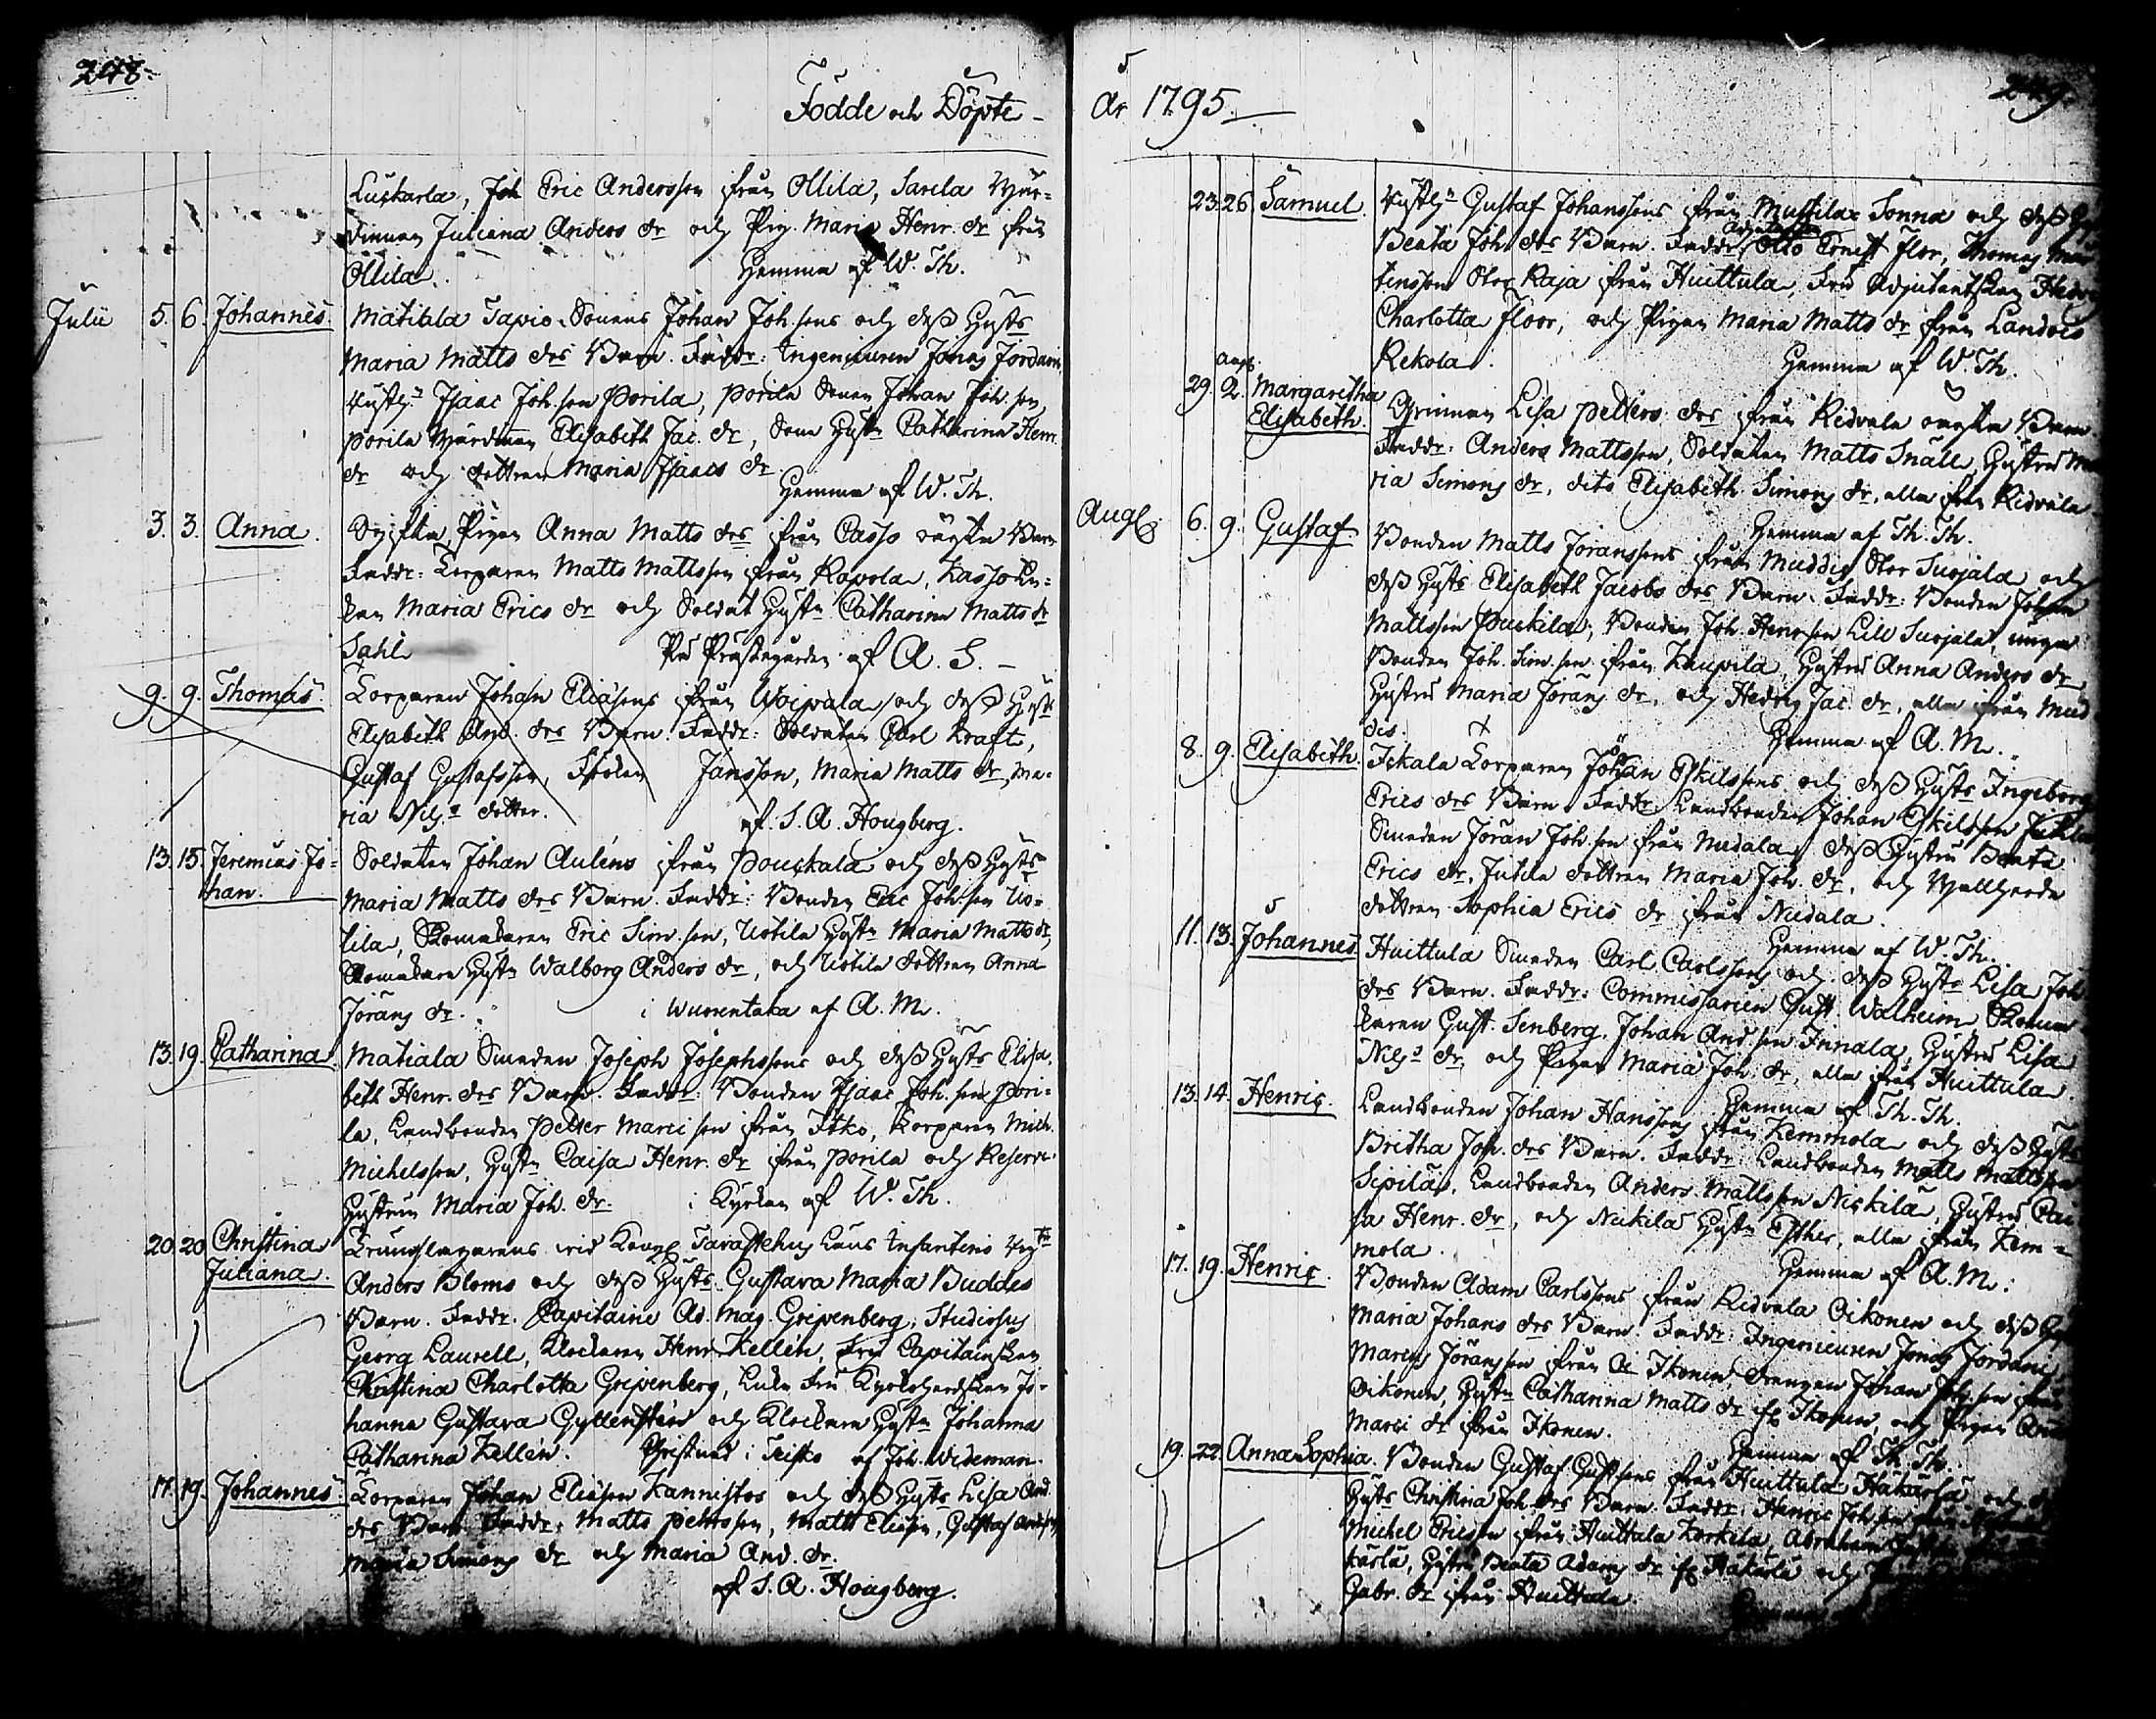 248.
Födde och Döpte
Luskarla, Joh Eric Andersson från Ollila, Sarela Wär-
dinnan Juliana Anders dr och Pig. Maria Henr. dr från
Ollila. Hemma af W. Th.
Julii 5. 6. Johannes. Matitala Tapio Sonens Johan Joh. sons och dess Hust.
Maria Matts drs Barn. Faddr: Ingenieuren Jonas Jordan,
Isaac Joh. son Porila, Porila Sonen Johan Joh. son
Porila Wärdinnan Elisabeth Jac. dr, Hustr Catharina Henr.
dr och dottren Maria Isaacs dr
Hemma af W. Th.
3. 3. Anna. Ogifta Pigan Anna Matts drs från Casso oägta Barn
Faddr: Torparen Matts Mattsson från Kapola, Kasso
Maria Erics dr och Soldat Hustr Catharina Matts dr
Sahl På Prästegården af A. S.
9. 9. Thomas Torparen Johan Eliæsons från Woipala och dess Hust.
Elisabeth And. drs Barn. Faddr: Soldaten Carl Kraft,
Gustaf Gustafsson, Jansson, Maria Matts dr, Ma-
ria Nils dotter. af S. A. Hougberg.
13. 15. Jeremias Jo-
han. Soldaten Johan Auléns från Pouskala och dess Hustr
Maria Matts drs Barn. Faddr: Bonden Eric Joh. son Uo-
tila, Skomakaren Eric Sim. son, Uotila Hustr Maria Matts dr,
Skomakare Hustr Walborg Anders dr, och Uotila dottren Anna
Jörans dr. i Wuorentaka af A. M.
13. 19. Catharina. Matiala Smeden Joseph Josephssons och dess Hustr Elisa-
beth Henr. drs Barn. Faddr: Bonden Isaac Joh. son Pori-
la, Landbonden Petter Marci son från Itko, Torparen Mich.
Michelsson, Hustr Caisa Henr. dr från Porila och Reserv.
Hustrun Maria Joh. dr. i Kyrkan af W. Th.
20. 20 Christina
Juliana. Trumslagarens vid Kongl Tavastehus Läns Infanterie Reg.te
Anders Bloms och dess Hustr Gustava Maria Buddes
Barn. Faddr. Capitaine Ad. Mag. Gripenberg, Studiosus
Georg Laurell, Klockaren Henr. Kellén, Fru Capitainskan
Christina Charlotta Gripenberg, Fru Kyrkoherdskan Jo-
hanna Gustava Gyllenstein och Klockare Hustr Johanna
Catharina Kellén. Christnad i af Joh. Wideman.
17. 19. Johannes. Torparen Johan Eliæson Kannistos och dess Hustr Lisa And.
drs Barn Faddr. Matts Pettersson, Matts Eliæson, Gustaf And. son
Maria Simons dr och Maria And. dr.
af S. A. Hougberg.
År 1795.
249.
23. 26 Samuel. Gustaf Johanssons från Mustila Sonna och dess
Beata Joh. drs Barn. Faddr. Adjutanten Otto Ernst Flor, Thomas Mår-
tensson Stor Raja från Huittula, Fru Adjutantskan Hedvig
Charlotta Floor, och Pigan Maria Matts dr från Landois
Rekola. Hemma af W. Th.
29. Aug. 2. Margaretha
Elisabeth. Qvinnan Lisa Petters drs från Ridvala oägta Barn.
Faddr: Anders Mattsson, Soldaten Matts Snäll, Hustru Ma-
ria Simons dr, dito Elisabeth Simons dr, alla från Ridvala
Hemma af Th. Th.
Aug. 6. 9. Gustaf Bonden Matts Joranssons från Muddis Stor Suojala och
dess Hustr Elisabeth Jacobs drs Barn. Faddr: Bonden Johan
Mattsson Puckila, Bonden Joh. Henr. son Lill Suojala, unga
Bonden Joh. Sim. son från Kaupila, Hustru Anna Anders dr
Hustru Maria Jörans dr, och Hedvig Jac. dr, alla från Mud-
dis. Hemma af A. M.
8. 9. Elisabeth. Iskala Torparen Johan Eskilssons och dess Hustr Ingeborg
Erics drs Barn Faddr: Landbonden Johan Eskilsson Jutila
Smeden Jöran Joh. son från Nudala, dess Hustru Beata
Erics dr, Jutila dottren Maria Joh. dr, och
dottren Sophia Erics dr från Nudala.
Hemma af W. Th.
11. 13. Johannes. Huittula Smeden Carl Carlssons och dess Hustr Lisa Joh
drs Barn. Faddr: Commissarien Gust. Walheim, Skoma-
karen Gust. Senberg, Johan And. son Innala, Hustru Lisa
Nils dr, och Pigan Maria Joh. dr, alla från Huittula.
Hemma af Th. Th.
13. 14. Henric. Landbonden Johan Hanssons från Kemmola och dess Hustr
Britha Joh. drs Barn. Faddr: Landbonden Matts Mattsson
Sipilä, Landbonden Anders Mattsson Nickilä, Hustru Cai-
sa Henr. dr, och Nickilä Hustr Esther, alla från Kem-
mola. Hemma af A. M.
17. 19. Henric Bonden Adam Carlssons från Ridvala Oikonen och dess
Maria Johans drs Barn. Faddr: Ingenieuren Jonas Jordan,
Marcus Joransson från Ikonen, drengen Johan Joh. son från
Oikonen, Hustr Catharina Matts dr fr. Ikonen och Pigan
Marci dr från Ikonen.
Hemma af Th. Th.
19. 22. Anna Sophia. Bonden Gustaf Gust. sons från Huittula Hakarla och
Hustr Christina Joh. drs Barn Faddr: Henric Joh. son
Michel Ericson från Huittula Korkila, Abraham
karla, Hustru Beata Adams dr fr Hakarla och
Gabr. dr från Huittula
Hemma